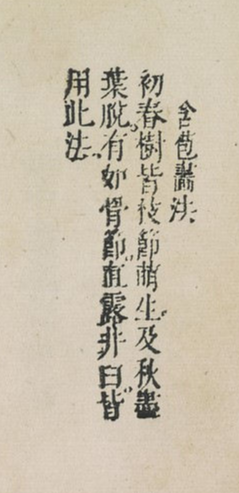 含苞畵法
初春樹皆枝節萌生及秋盡
葉脫有如骨節直露非白皆
用此法